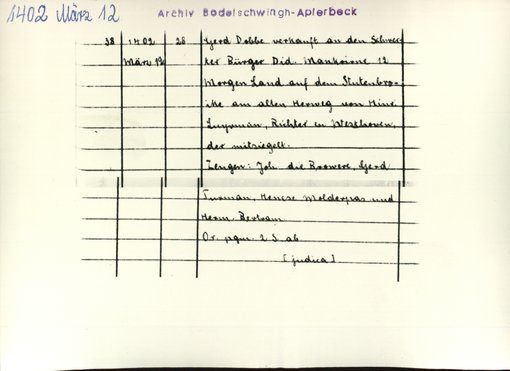 1402 März 12
Archiv Bodelschwingh-Aplerbeck
38 1402 28 Gerd Dobbe verkauft an den Schwer-
März 12 ter Bürger Did. Mankoirne 12
Morgen Land auf dem Stutenbro-
ike am alten Herweg von Hinr.
Luyrman, Richter en Westhoven,
der mitsiegelt.
Zeugen: Joh. die Brower, Gerd
Turman, Hencse Molderpas und
Herm. Bertram
Or. pgm. 2 S ab
[judica]